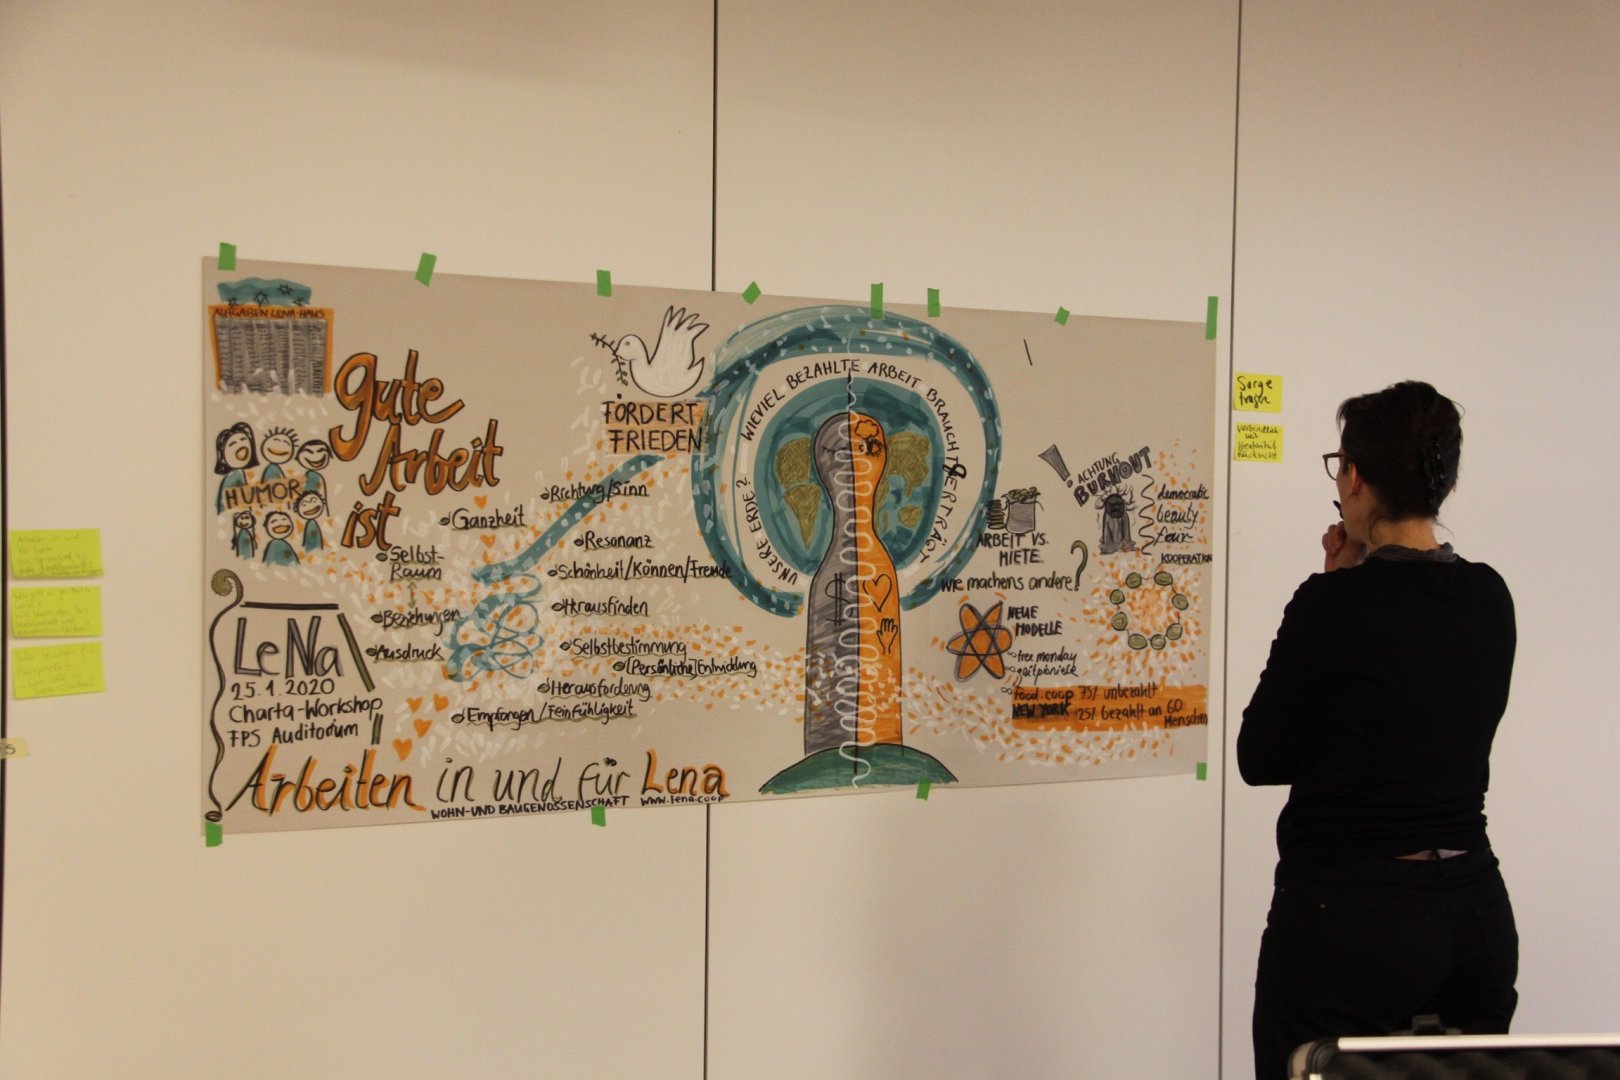 AUFGABEN LENA-HAUS
gute
Arbeit
ist
HUMOR
FÖRDERT
FRIEDEN
Richtung/Sinn
Ganzheit
Resonanz
Selbst-
Raum
Schönheit/Können/Freude
Herausfinden
Beziehungen
Ausdruck
Selbstbestimmung
(Persönliche) Entwicklung
Herausforderung
Empfangen/Feinfühligkeit
LeNa
25.1.2020
Charta-Workshop
FPS Auditorium
Arbeiten in und für Lena
WOHN-UND BAUGENOSSENSCHAFT www.lena.coop
WIEVIEL BEZAHLTE ARBEIT BRAUCHT/ERTRÄGT
UNSERE ERDE?
$
ARBEIT VS.
MIETE
! ACHTUNG
BURNOUT
democratic
beauty
fear
KOOPERATION
wie machens andere?
NEUE
MODELLE
free monday
zeitpioniere
food.coop 75% unbezahlt
NEW YORK 25% bezahlt an 60
Menschen
Sorge
tragen